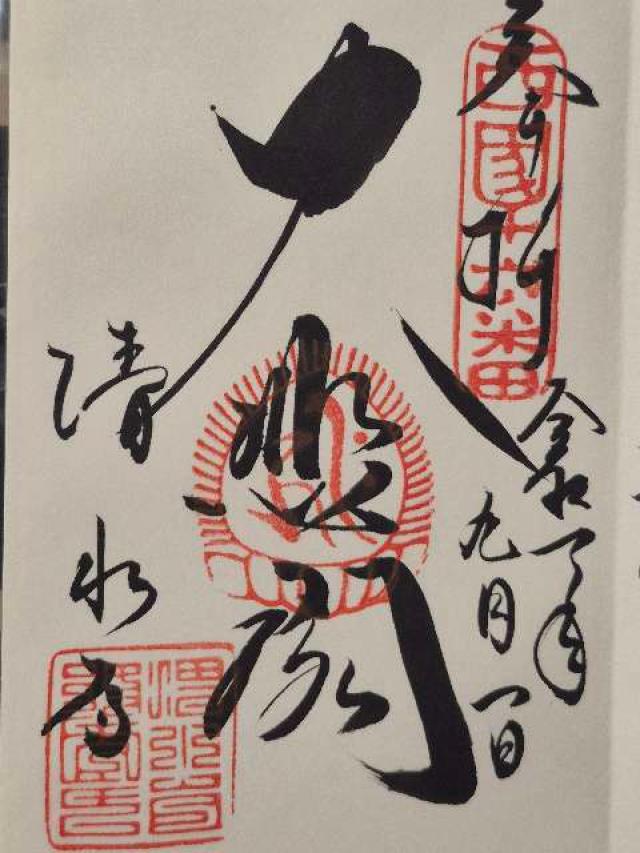 奉拝
西國十六番
令和 年
九月一日
大悲閣
清水寺